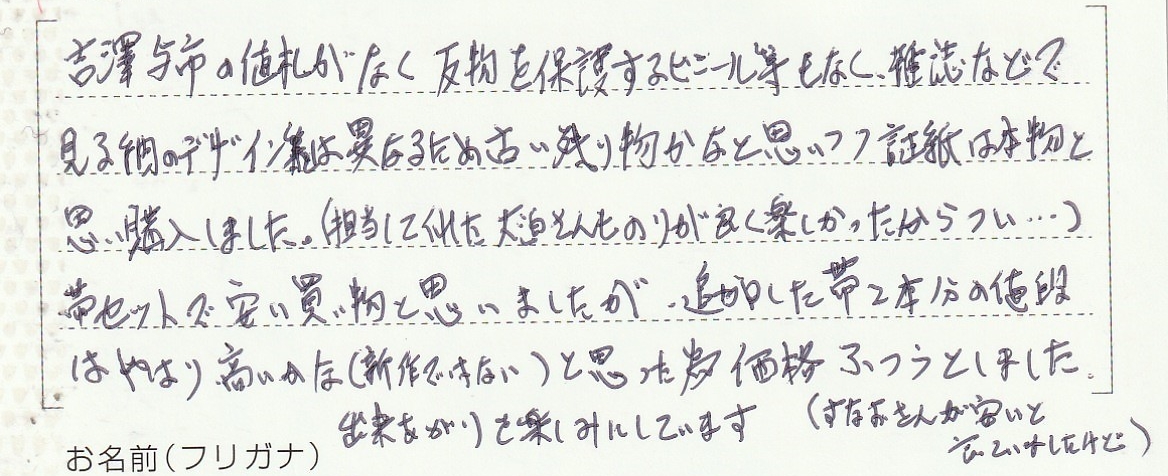 吉澤与市の値札がなく反物を保護するビニール等もなく、雑誌などで
見る柄のデザイン集は異なるため古い残り物かなと思いつつ証紙は本物と
思い購入しました。(担当して くれた 大迫さんものりが良く楽しかったからつい…)
帯セットで安い買い物と思いましたが、追加した帯2本分の値段
はやはり高いかな(新作ではない)と思った為 価格ふつうとしました。
出来あがりを楽しみにしています (すなおさんが安いと
言っていましたけど)
お名前(フリガナ)